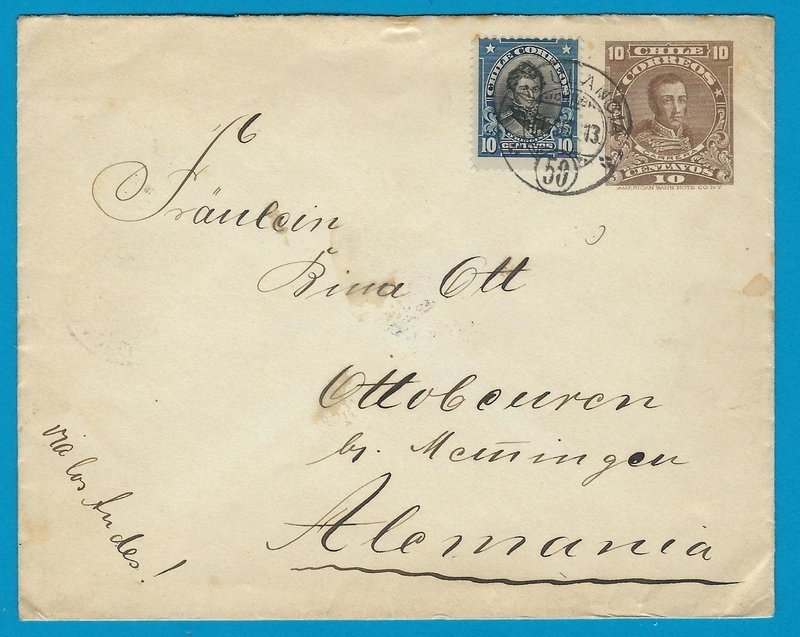 CHILE CORREOS
10 10
CENTAVOS
10 CHILE 10
CORREOS
CARRERA
CENTAVOS
10
AMERICAN BANK NOTE CO. N.Y.
13
50
Fräulein
Bina Ott
Ottobeuren
br. Memingen
Alemania
via los Andes!